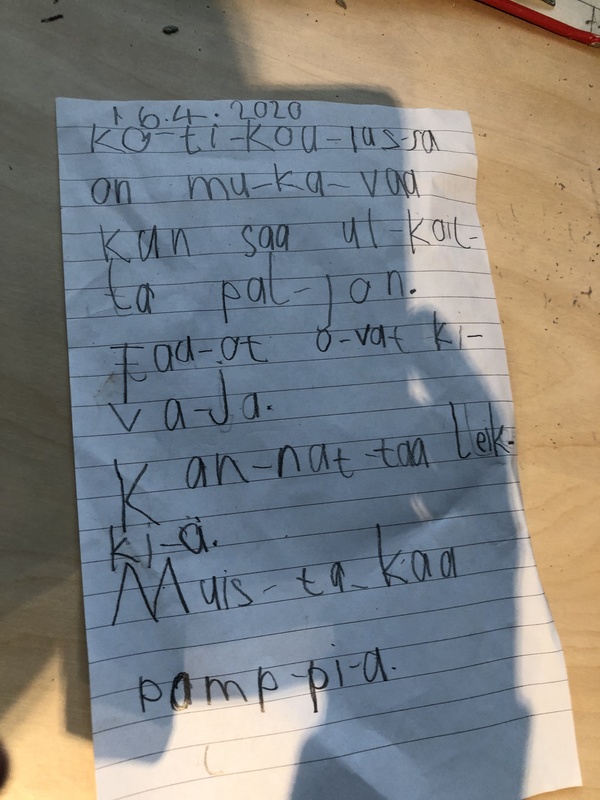 16.4.2020
KO-ti-KOU-lus-sa
on mu-Ka-vaa
Kun saa ul-Koil-
ta pal-jon.
Ead-ot o-vat ki-
va-ja.
Kan-nat-taa leik-
ki-ä.
Muis-ta-kaa
pamp-pi-a.